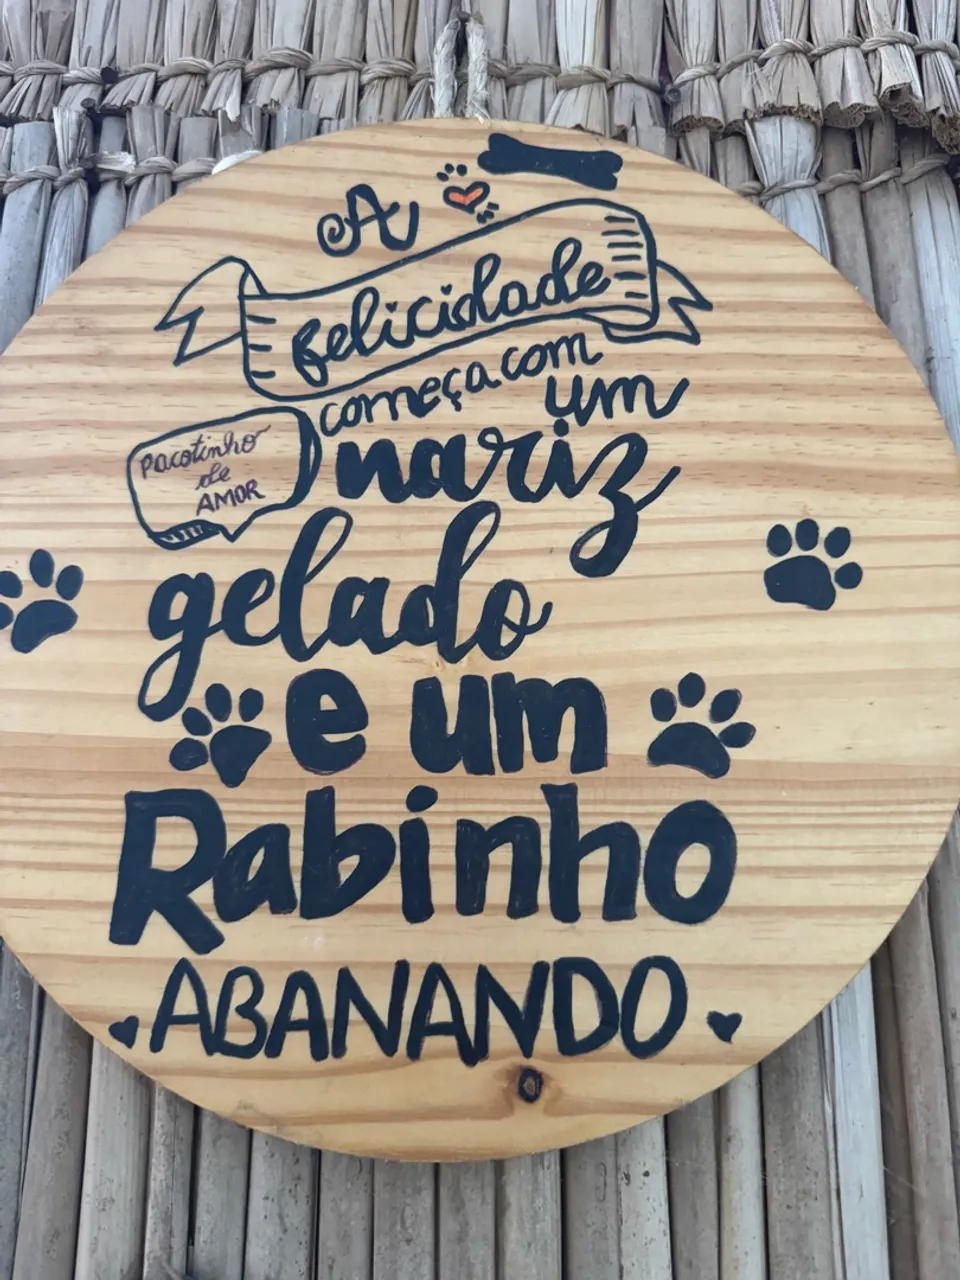 A
felicidade
começa com
um
nariz
pacotinho
de
AMOR
gelado
e um
Rabinho
ABANANDO